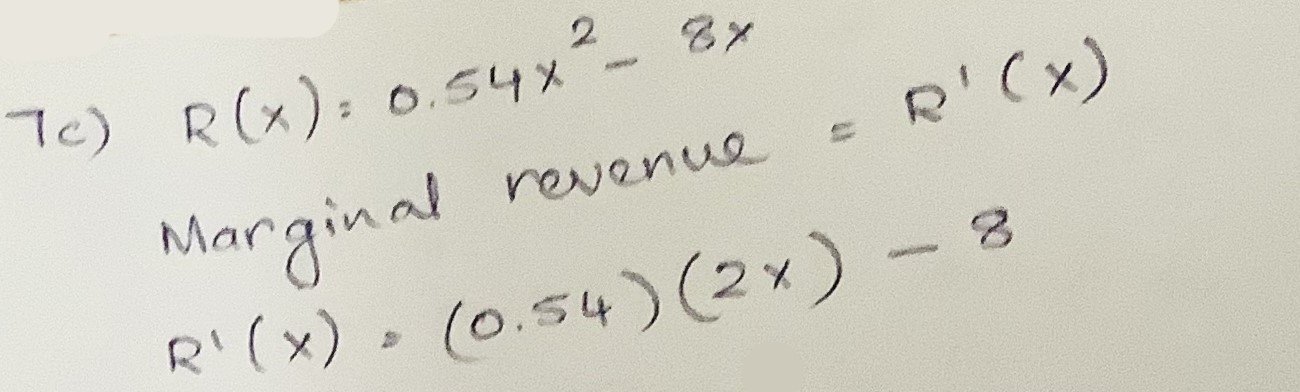 7c) R(x) = 0.54x² - 8x
Marginal revenue = R'(x)
R'(x) = (0.54)(2x) - 8